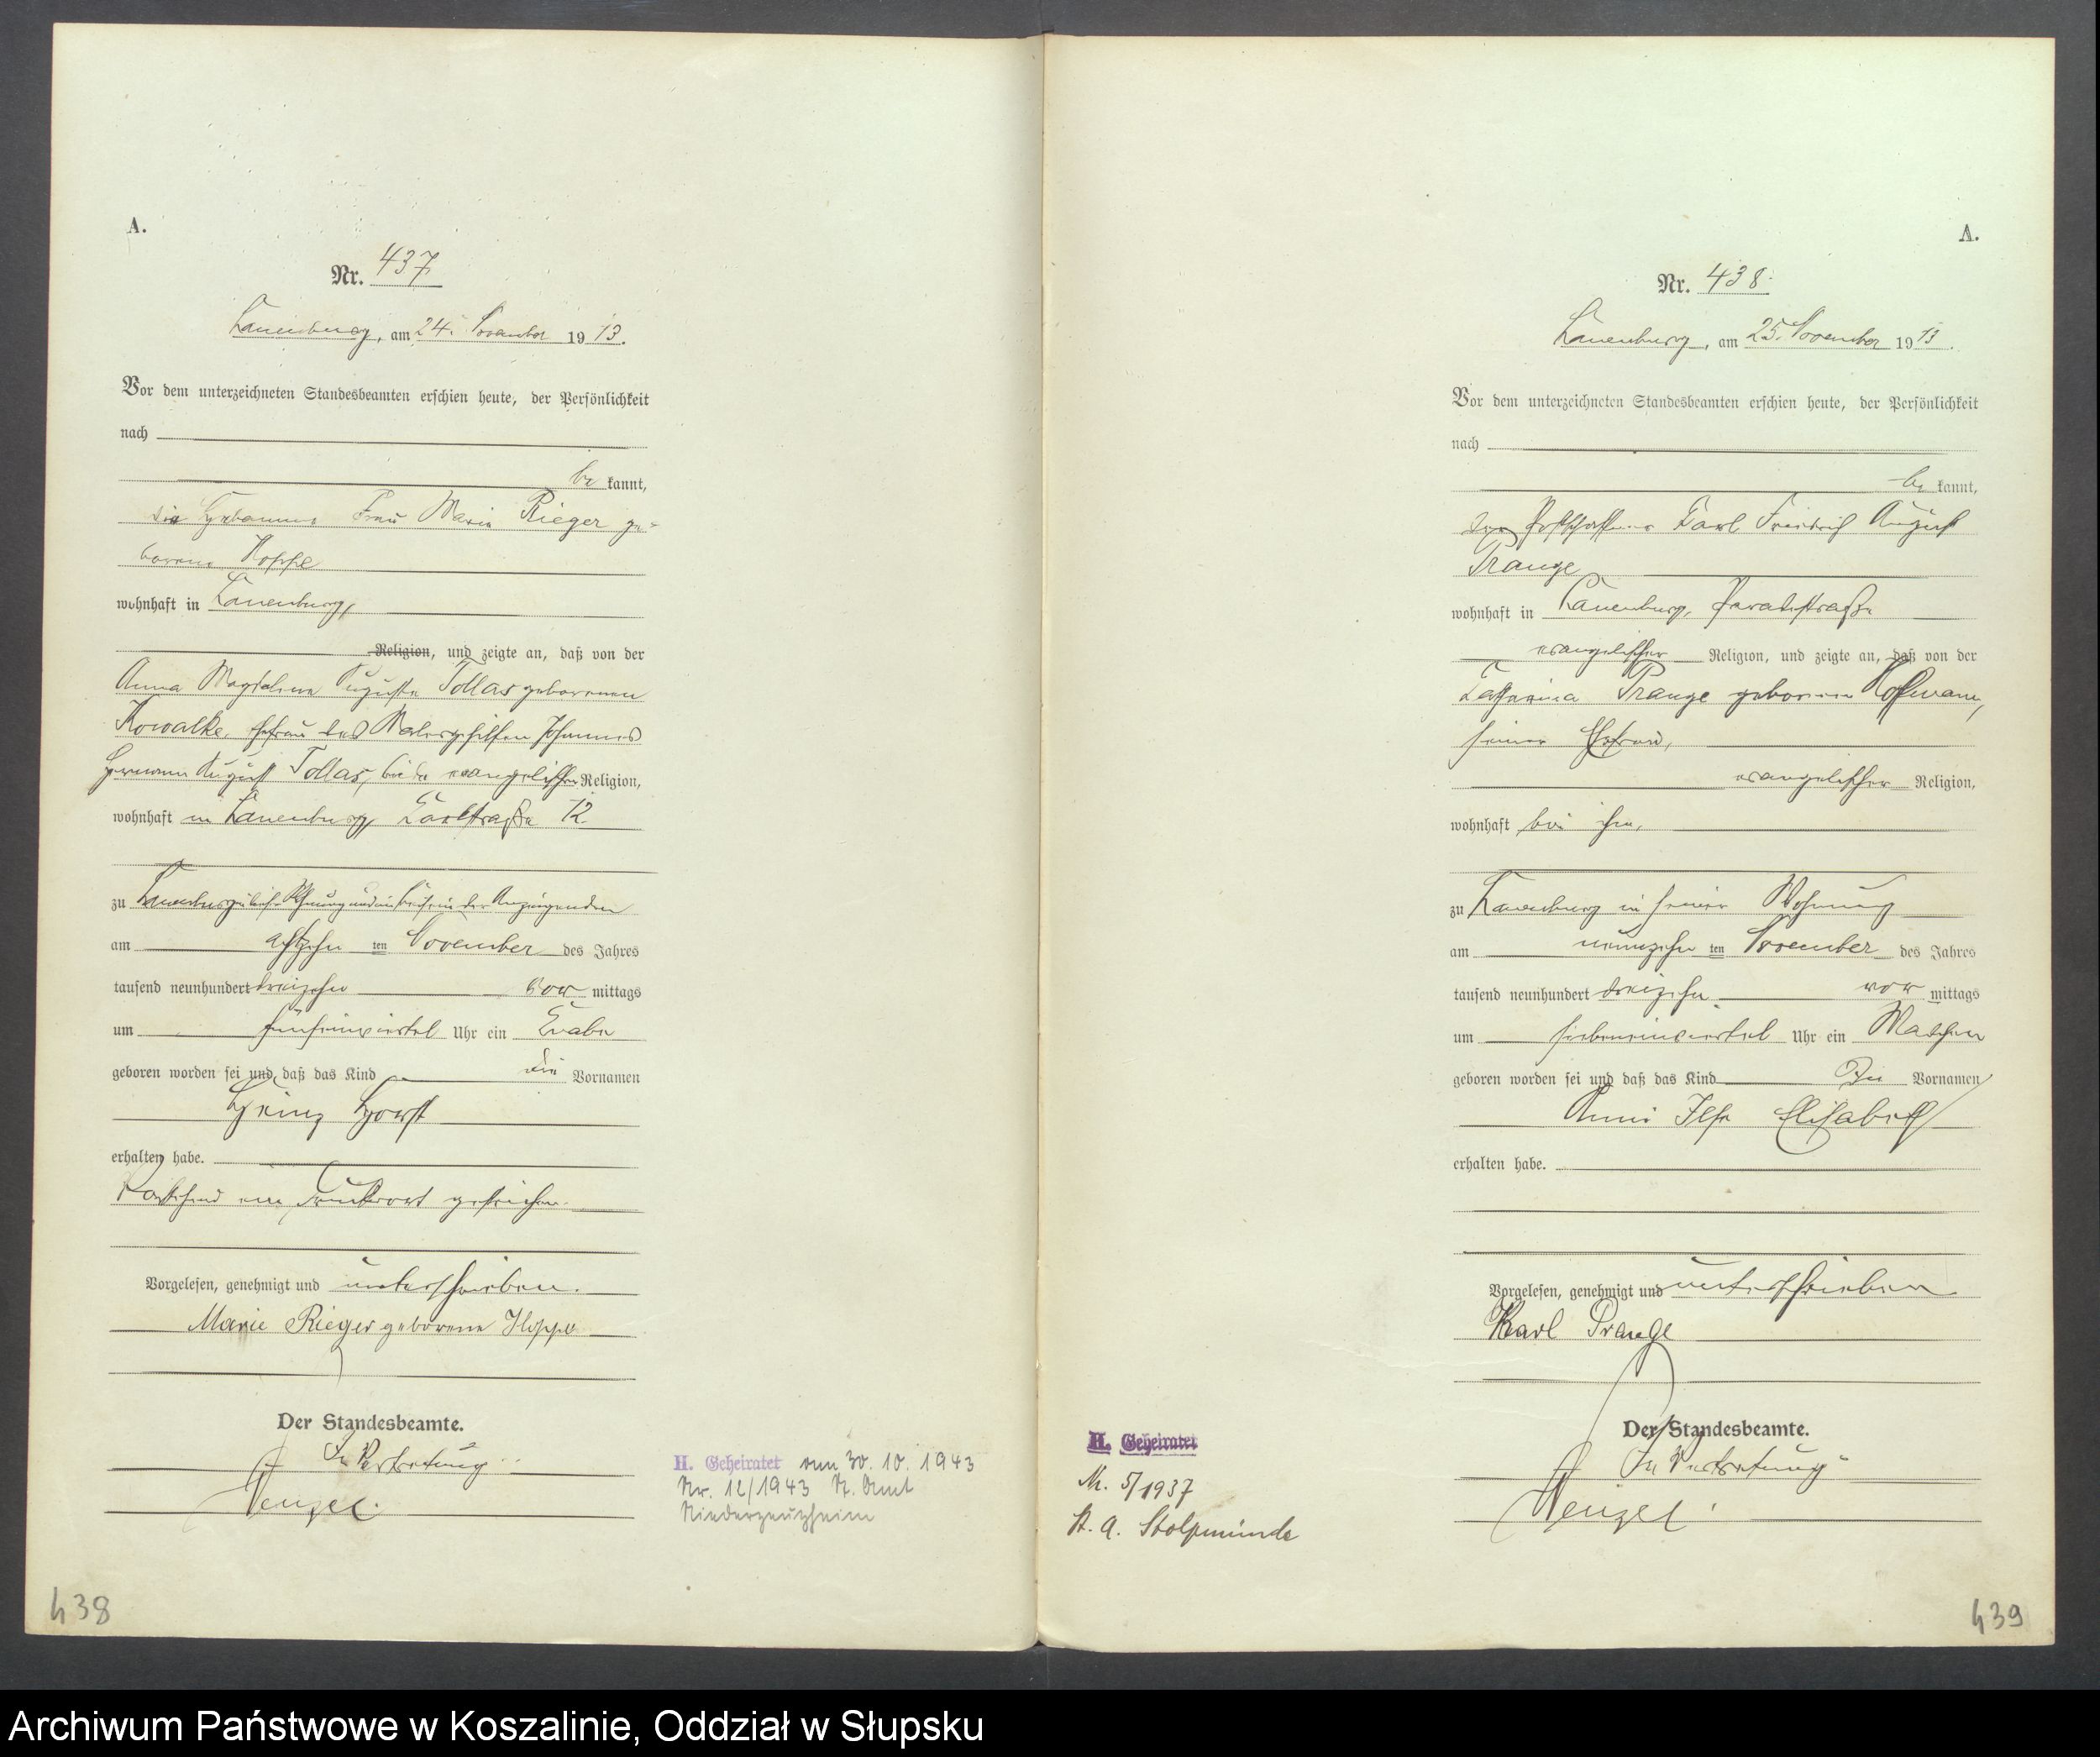 A.
Nr. 437
Lauenburg, am 24. November 1913.
Vor dem unterzeichneten Standesbeamten erschien heute, der Persönlichkeit
nach
be kannt,
die Hebamme Frau Marie Rieger ge-
borene Hoppe
wohnhaft in Lauenburg,
Religion, und zeigte an, daß von der
Anna Magdalena Auguste Tollas geborenen
Kowalke, Ehefrau des Malergehilfen Johannes
Hermann August Tollas, beide evangelischer Religion,
wohnhaft in Lauenburg Karlstraße 12
zu Lauenburg in dieser Wohnung und im Beisein der Anzeigenden
am achtzehn ten November des Jahres
tausend neunhundert dreizehn vor mittags
um fünfeinviertel Uhr ein Knabe
geboren worden sei und daß das Kind die Vornamen
Heinz Horst
erhalten habe.
Vorstehend ein Druckwort gestrichen.
Vorgelesen, genehmigt und unterschrieben.
Marie Rieger geborene Hoppe
Der Standesbeamte.
In Vertretung
Wenzel.
H. Geheiratet am 30.10.1943
Nr. 12/1943 St. Amt
Niederzeuzheim
438
A.
Nr. 438.
Lauenburg, am 25. November 1913.
Vor dem unterzeichneten Standesbeamten erschien heute, der Persönlichkeit
nach
be kannt,
der Postschaffner Karl Friedrich August
Prange
wohnhaft in Lauenburg, Paradestraße
evangelischer Religion, und zeigte an, daß von der
Katharina Prange geborenen Hoffmann,
seiner Ehefrau,
evangelischer Religion,
wohnhaft bei ihm,
zu Lauenburg in seiner Wohnung
am neunzehn ten November des Jahres
tausend neunhundert dreizehn vor mittags
um siebeneinviertel Uhr ein Mädchen
geboren worden sei und daß das Kind die Vornamen
Anni Ilse Elisabeth
erhalten habe.
Vorgelesen, genehmigt und unterschrieben
Karl Prange
Der Standesbeamte.
In Vertretung
Wenzel.
H. Geheiratet
Nr. 5/1937
St. A. Stolpmünde
439
Archiwum Państwowe w Koszalinie, Oddział w Słupsku